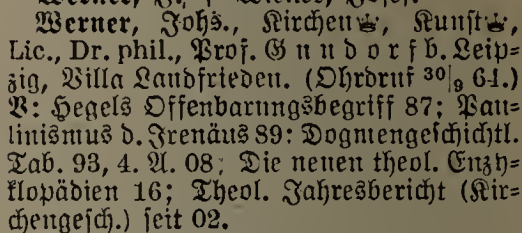 Werner, Johs., Kirchen♛, Kunst♛,
Lic., Dr. phil., Prof. Gundorf b. Leip-
zig, Villa Landfrieden. (Ohrdruf 30|9 64.)
V: Hegels Offenbarungsbegriff 87; Pau-
linismus d. Irenäus 89: Dogmengeschichtl.
Tab. 93, 4. A. 08; Die neuen theol. Enzy-
klopädien 16; Theol. Jahresbericht (Kir-
chengesch.) seit 02.